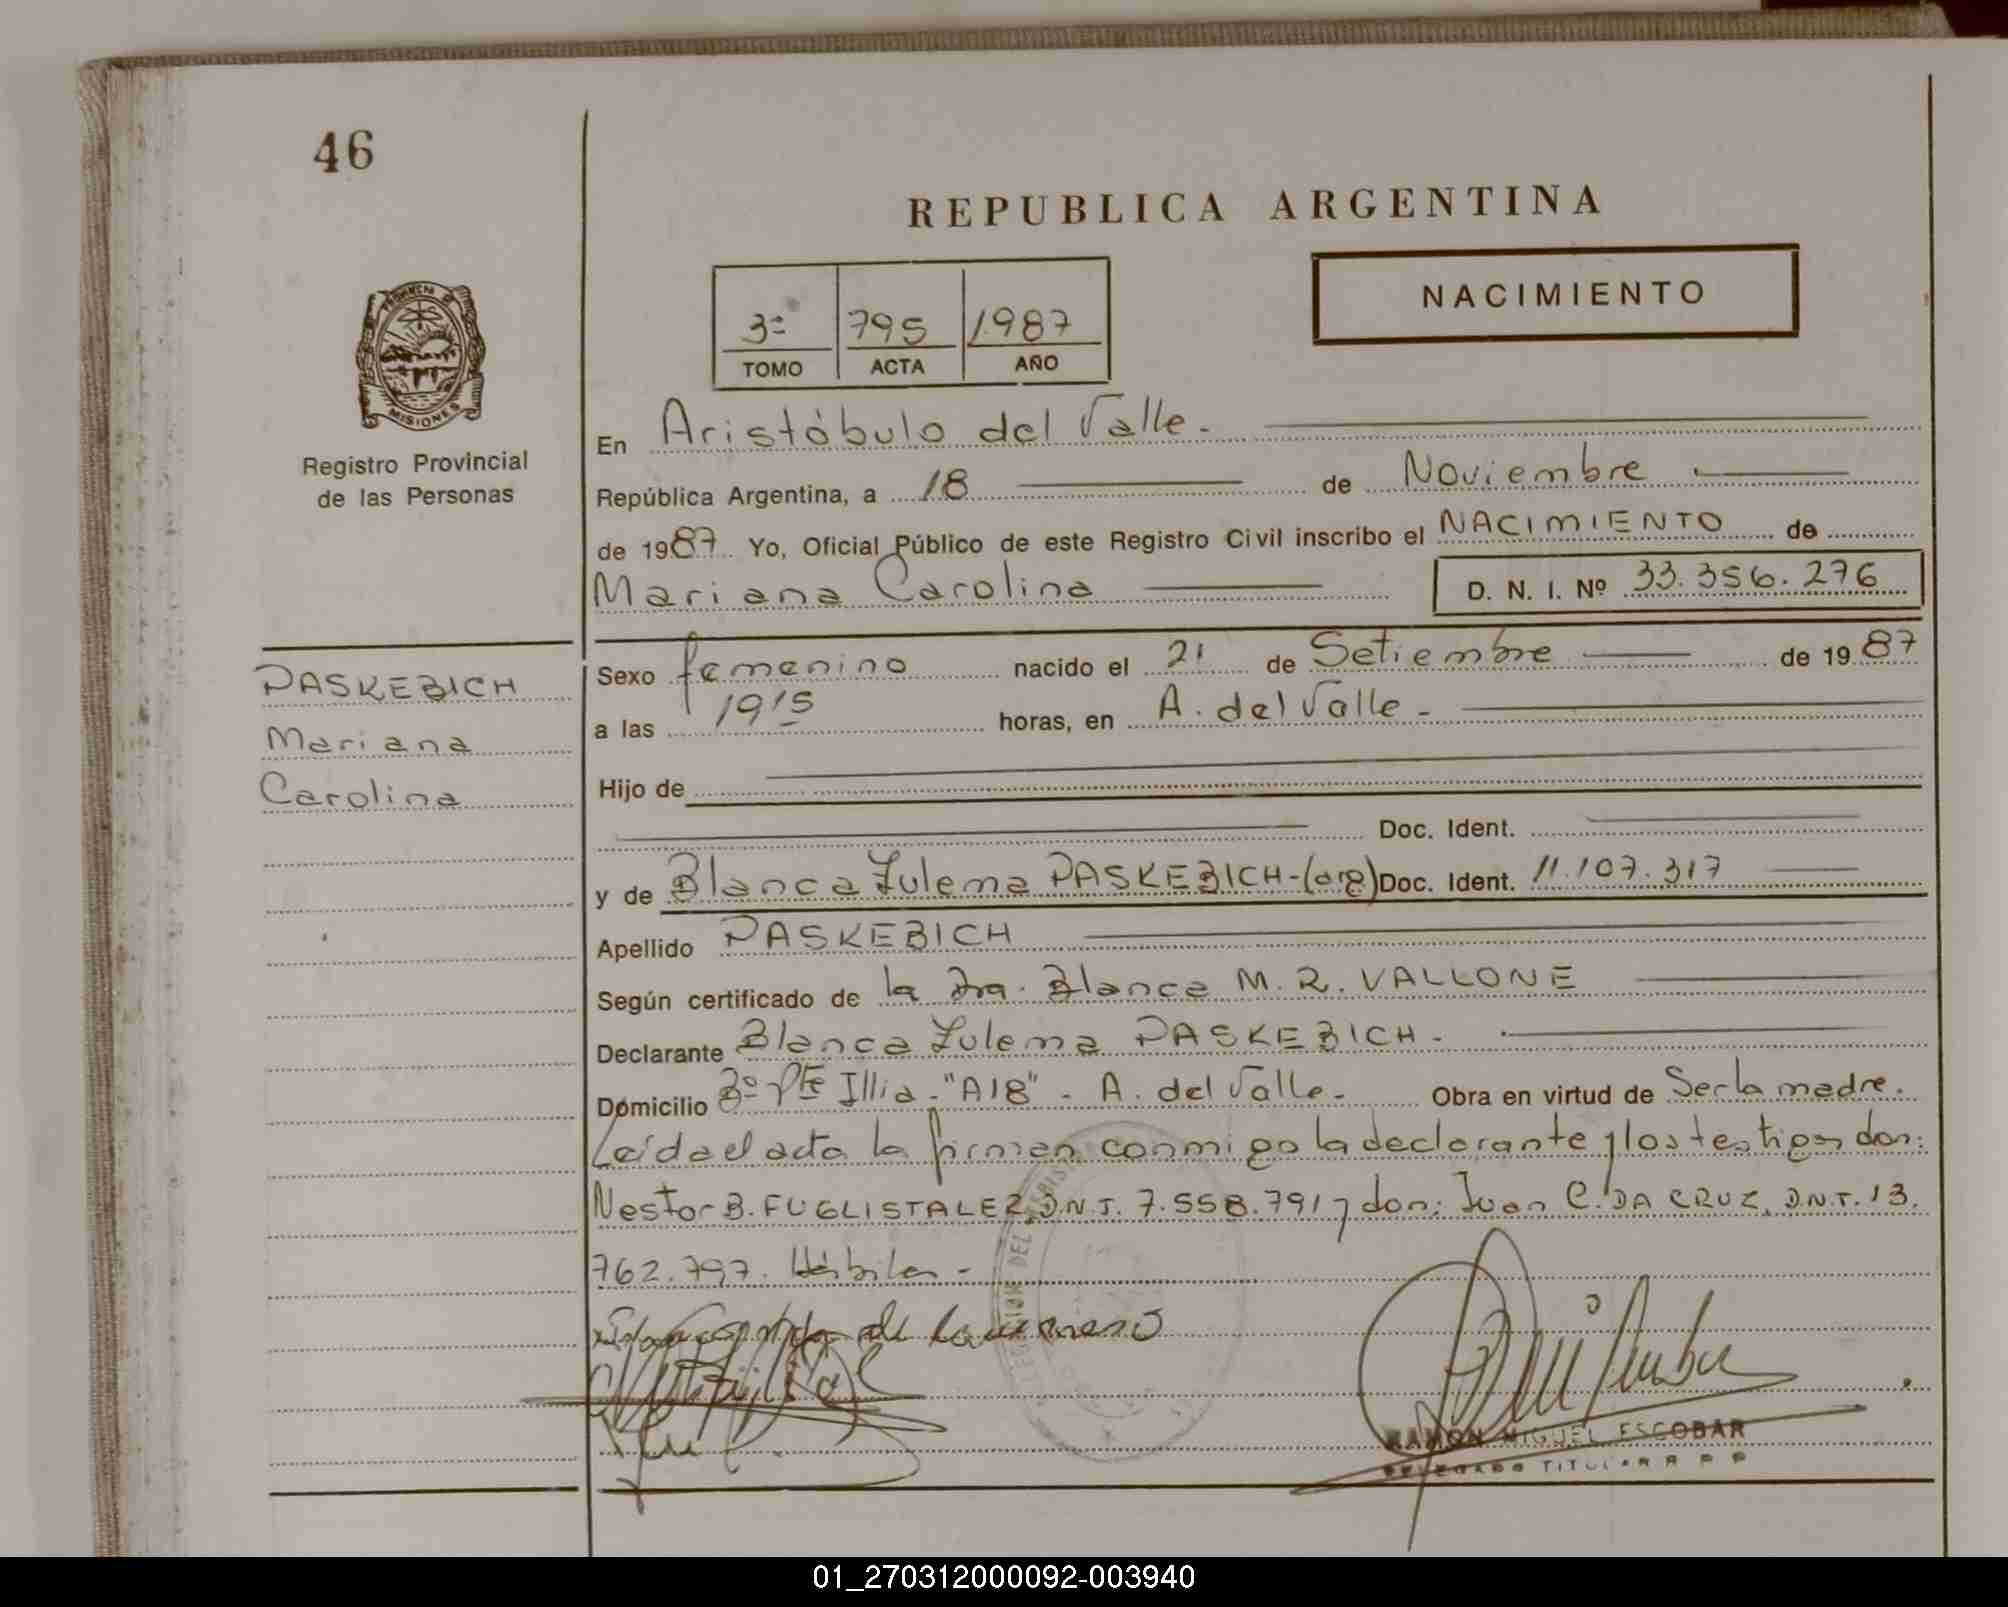 46
REPUBLICA ARGENTINA
NACIMIENTO
3º 795 1.987
TOMO ACTA AÑO
PROVINCIA DE
MISIONES
Registro Provincial
de las Personas
En Aristóbulo del Valle.-
República Argentina, a 18 de Noviembre
de 1987 Yo, Oficial Público de este Registro Civil inscribo el NACIMIENTO de
Mariana Carolina D. N. I. Nº 33.356.276
PASKEBICH
Mariana
Carolina
Sexo femenino nacido el 21 de Setiembre de 1987
a las 1915 horas, en A. del Valle -
Hijo de
Doc. Ident.
y de Blanca Zulema PASKEBICH-(arg) Doc. Ident. 11.107.317
Apellido PASKEBICH
Según certificado de la Dra. Blanca M. R. VALLONE
Declarante Blanca Zulema PASKEBICH.
Domicilio Bº Pte Illia - "A18" - A. del Valle.- Obra en virtud de Ser la madre.
Leída el acta la firman conmigo la declarante y los testigos don:
Nestor B. FUGLISTALER, D.N.I. 7.558.791 y don: Juan C. DA CRUZ, D.N.I. 13.
762.797. Hábiles -
RAMON MIGUEL ESCOBAR
DELEGADO TITULAR R P P
01_270312000092-003940